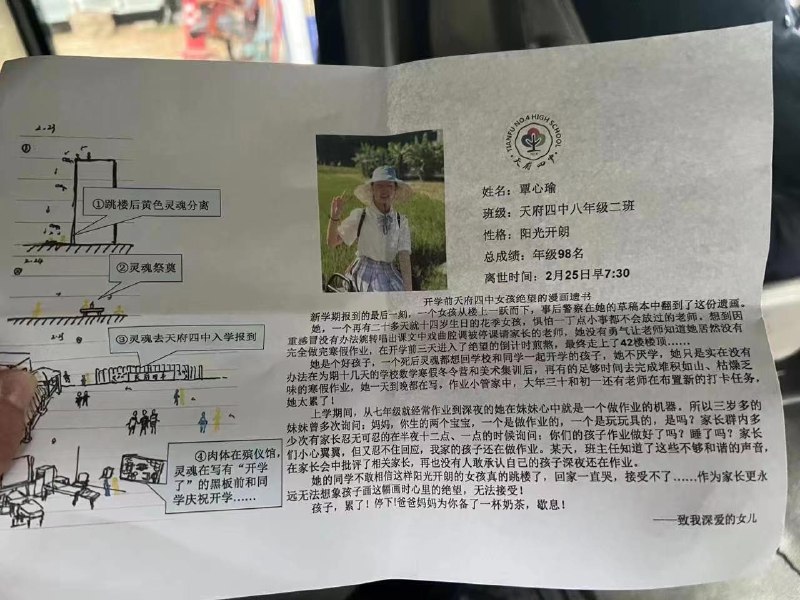 2-23
①跳楼后黄色灵魂分离
2-24
②灵魂祭奠
③灵魂去天府四中入学报到
④肉体在殡仪馆,
灵魂在写有“开学
了”的黑板前和同
学庆祝开学……
TIANFU NO.4 HIGH SCHOOL
天府四中
姓名: 覃心瑜
班级: 天府四中八年级二班
性格: 阳光开朗
总成绩: 年级98名
离世时间: 2月25日早7:30
开学前天府四中女孩绝望的漫画遗书
新学期报到的最后一刻,一个女孩从楼上一跃而下,事后警察在她的草稿本中翻到了这份遗画。
她,一个再有二十多天就十四岁生日的花季女孩,惧怕一丁点小事都不会放过的老师,想到因
重感冒没有办法婉转唱出课文中戏曲腔调被停课请家长的老师,她没有勇气让老师知道她居然没有
完全做完寒假作业,在开学前三天进入了绝望的倒计时煎熬,最终走上了42楼楼顶……
她是个好孩子,一个死后灵魂都想回学校和同学一起开学的孩子,她不厌学,她只是实在没有
办法在为期十几天的学校数学寒假冬令营和美术集训后,再有的足够时间去完成堆积如山、枯燥乏
味的寒假作业,她一天到晚都在写,作业小管家中,大年三十和初一还有老师在布置新的打卡任务,
她太累了!
上学期间,从七年级就经常作业到深夜的她在妹妹心中就是一个做作业的机器。所以三岁多的
妹妹曾多次询问:妈妈,你生的两个宝宝,一个是做作业的,一个是玩玩具的,是吗?家长群内多
少次有家长忍无可忍的在半夜十二点、一点的时候询问:你们的孩子作业做好了吗?睡了吗?家长
们小心翼翼,但又忍不住回应,我家的孩子还在做作业。某天,班主任知道了这些不够和谐的声音,
在家长会中批评了相关家长,再也没有人敢承认自己的孩子深夜还在作业。
她的同学不敢相信这样阳光开朗的女孩真的跳楼了,回家一直哭,接受不了……作为家长更永
远无法想象孩子画这幅画时心里的绝望,无法接受!
孩子,累了!停下!爸爸妈妈为你备了一杯奶茶,歇息!
——致我深爱的女儿